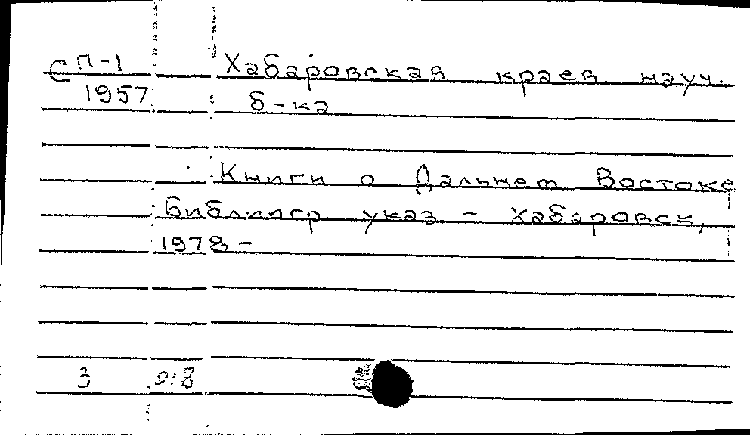 С П-1 Хабаровская краев. науч.
1957 б-ка
Книги о Дальнем Востоке
Библиогр указ - Хабаровск,
1978-
3